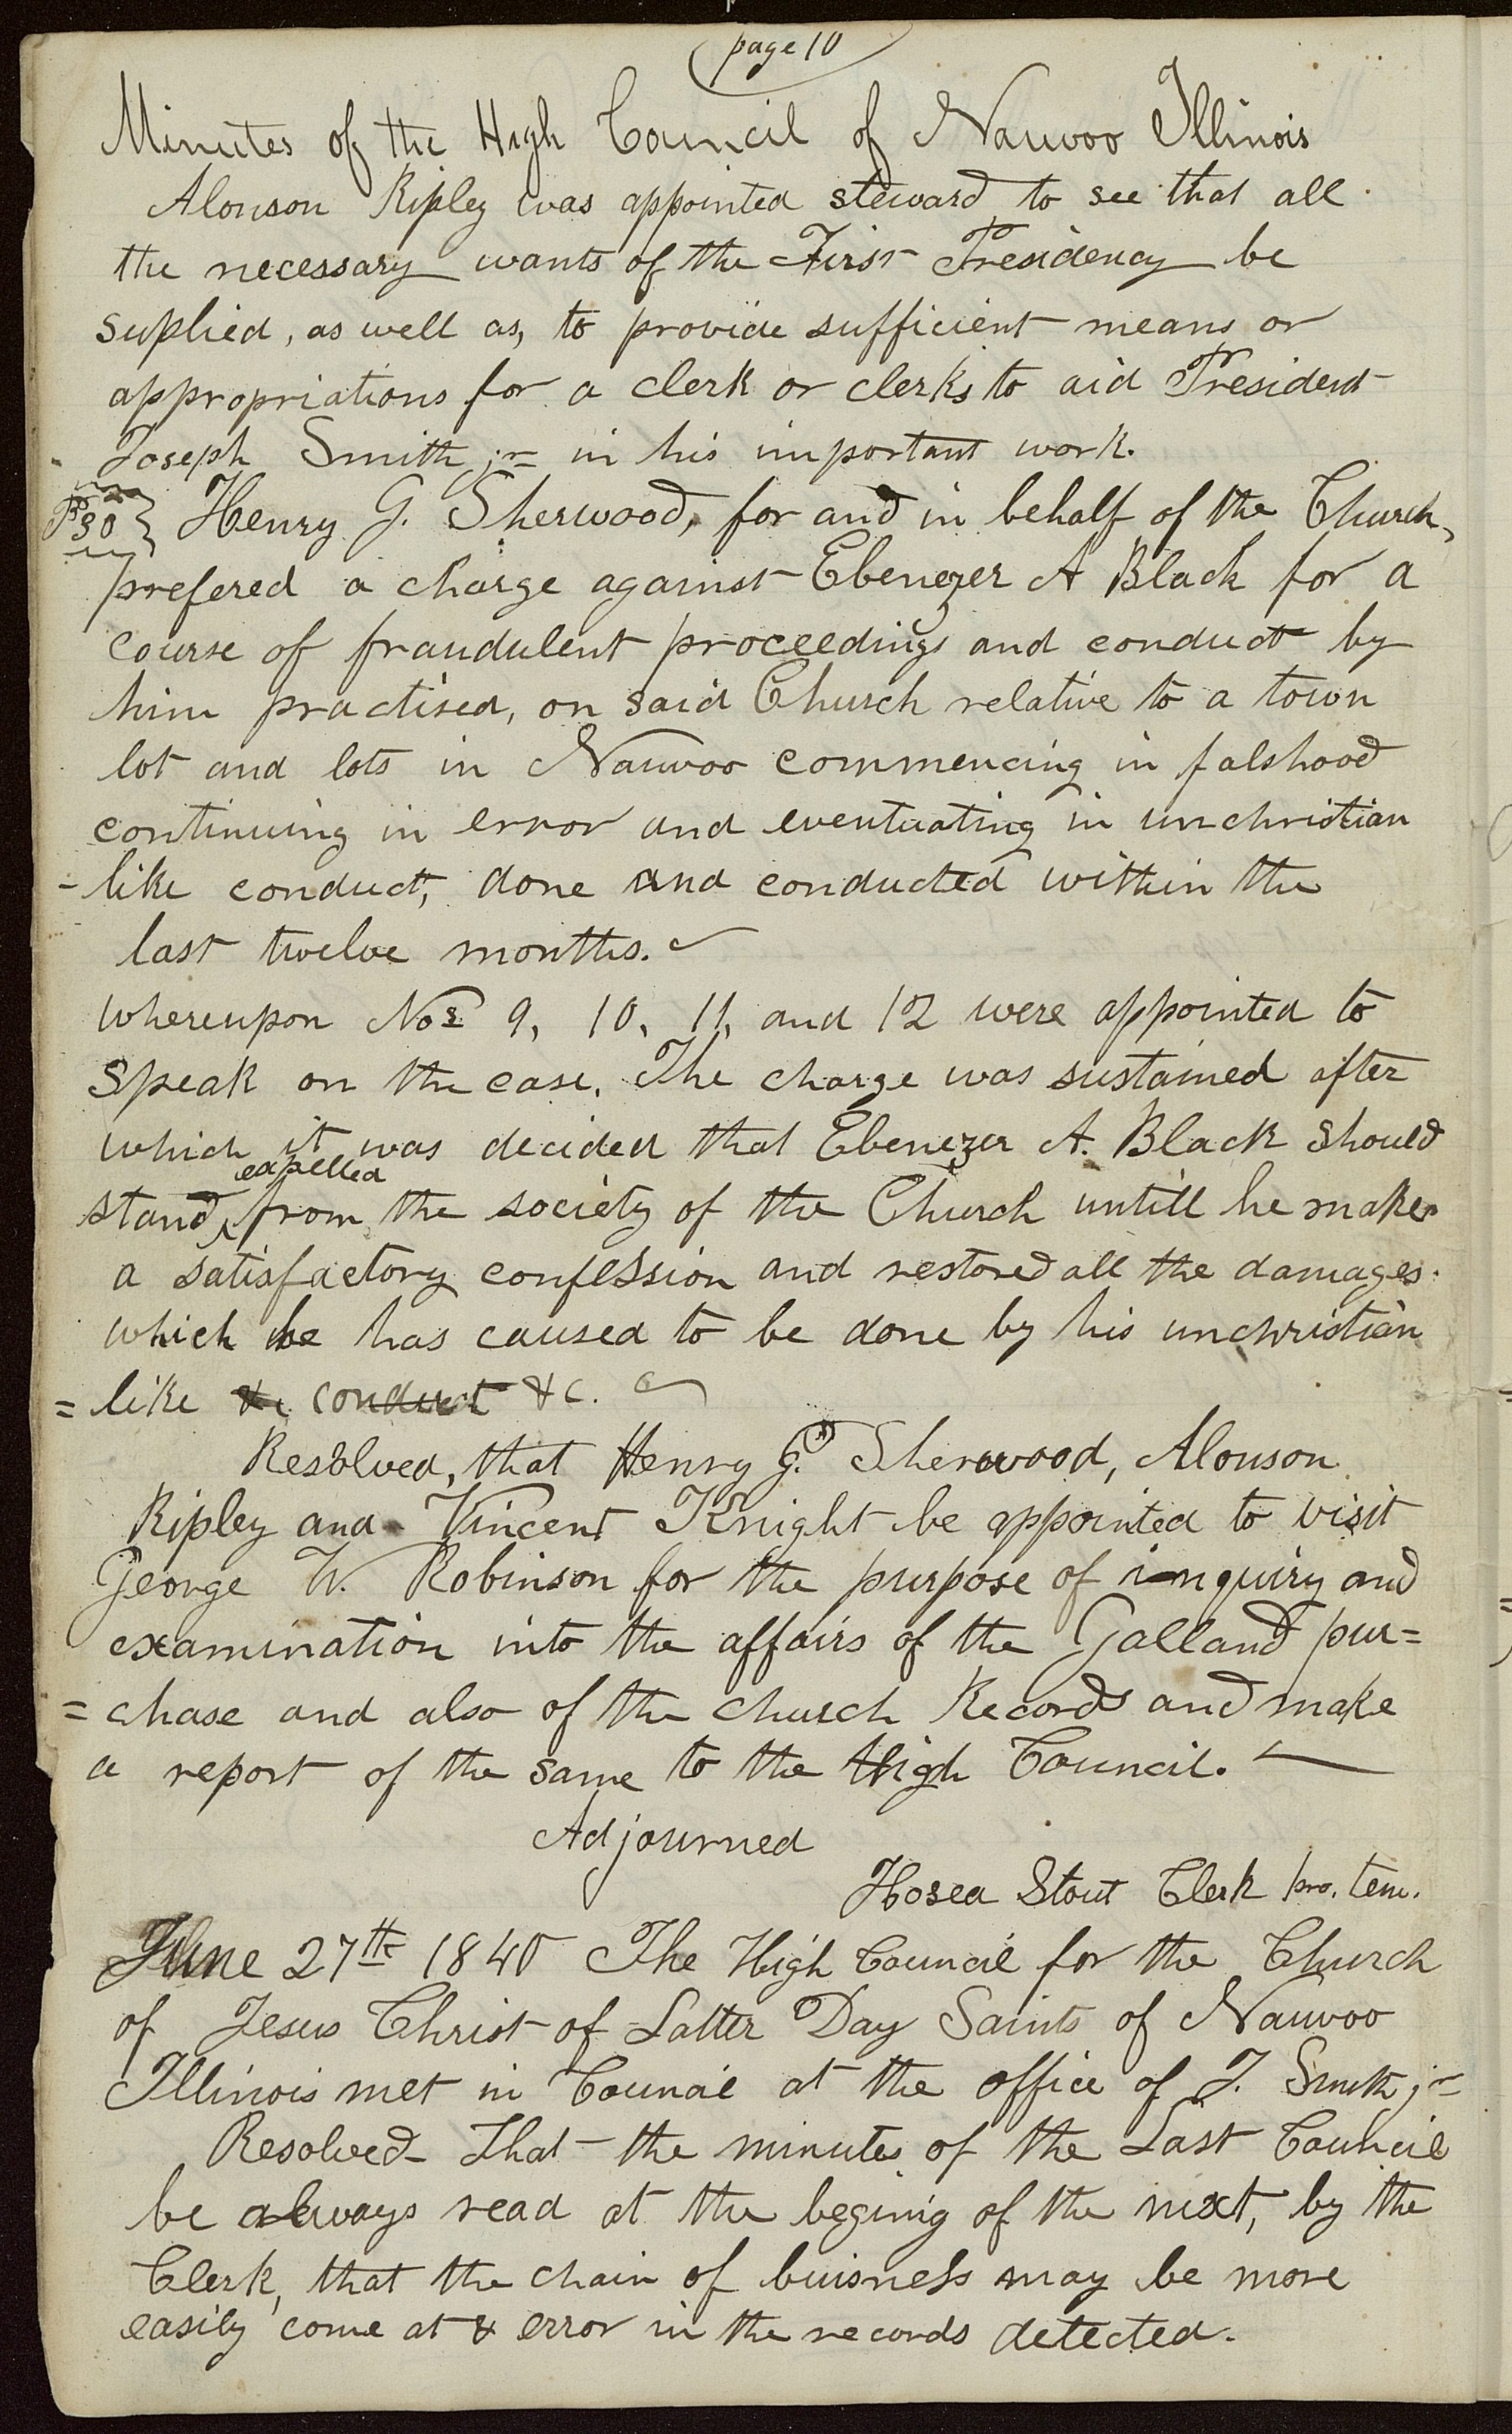 page 10
Minutes of the High Council of Nauvoo Illinois
Alonson Ripley was appointed steward to see that all
the necessary wants of the First Presidency be
suplied, as well as, to provide sufficient means or
appropriations for a clerk or clerks to aid President
Joseph Smith jr in his important work.
P 30 } Henry G. Sherwood, for and in behalf of the Church,
prefered a charge against Ebenezer A Black for a
course of fraudulent proceedings and conduct by
him practised, on said Church relative to a town
lot and lots in Nauvoo commencing in falshood
continuing in error and eventuating in unchristian
-like conduct, done and conducted within the
last twelve months.
whereupon Nos 9, 10, 11, and 12 were appointed to
speak on the case. The charge was sustained after
which it was decided that Ebenezer A. Black should
stand expelled from the society of the Church untill he makes
a satisfactory confession and restored all the damages.
which he has caused to be done by his unchristian
= like &c conduct &c.
Resolved, that Henry G. Sherwood, Alonson
Ripley and Vincent Knight be appointed to visit
George W. Robinson for the purpose of inquiry and
examination into the affairs of the Galland pur=
= chase and also of the church Records and make
a report of the same to the High Council.
Adjourned
Hosea Stout Clerk pro. tem.
June 27th 1840 The High Council for the Church
of Jesus Christ of Latter Day Saints of Nauvoo
Illinois met in Council at the office of J. Smith jr
Resolved That the minutes of the Last Council
be always read at the begining of the next, by the
Clerk, that the chain of buisness may be more
easily come at & error in the records detected.